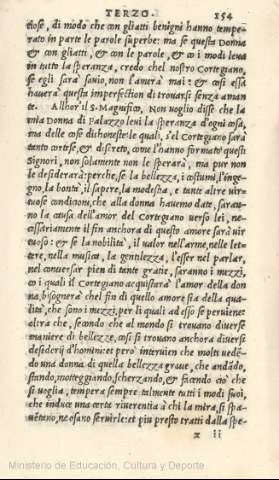 TERZO. 154
tiose, di modo che con gliatti benigni hanno tempe-
rato in parte le parole superbe: ma se questa Donna
& con gliatti, & con le parole, & co i modi leua
in tutto la speranza, credo chel nostro Cortegiano,
se egli sarà sauio, non l'amerà mai: & così essa
hauerà questa imperfettion di trouarsi senza aman
te. Allhor il S. Magnifico, Non voglio disse che la
mia Donna di Palazzo leui la speranza d'ogni cosa,
ma delle cose dishoneste: le quali, s'el Cortegiano sarà
tento cortese, & discreto, come l'hanno formato questi
Signori, non solamente non le sperarà, ma pur non
le desiderarà: perche, se la bellezza, i costumi, l'inge-
gno, la bontà, il sapere, la modestia, e tante altre vir-
tuose conditioni, che alla donna hauemo date, saran-
no la causa dell'amor del Cortegiano verso lei, ne-
cessariamente il fin anchora di questo amore sarà vir
tuoso: & se la nobiltà, il ualor nell'arme, nelle let-
tere, nella musica, la gentilezza, l'esser nel parlar,
nel conuersar pien di tante gratie, saranno i mezzi,
co i quali il Cortegiano acquistarà l'amor della don
na, bisognerà chel fin di quello amore sia della qua-
lità, che sono i mezzi, per li quali ad esso se peruiene:
oltra che, secondo che al mondo si trouano diuerse
maniere di bellezze, così si trouano anchora diuersi
desiderij d'homini: et però interuien che molti uedē-
do una donna di quella bellezza graue, che andādo,
stando, motteggiando, scherzando, & facendo ciò che
si voglia, tempera sempre talmente tutti i modi suoi,
che induce una certa riuerentia à chi la mira, si spa-
uētano, ne osano seruirle: et piu presto tratti dalla spe-
x ii
Ministerio de Educación, Cultura y Deporte